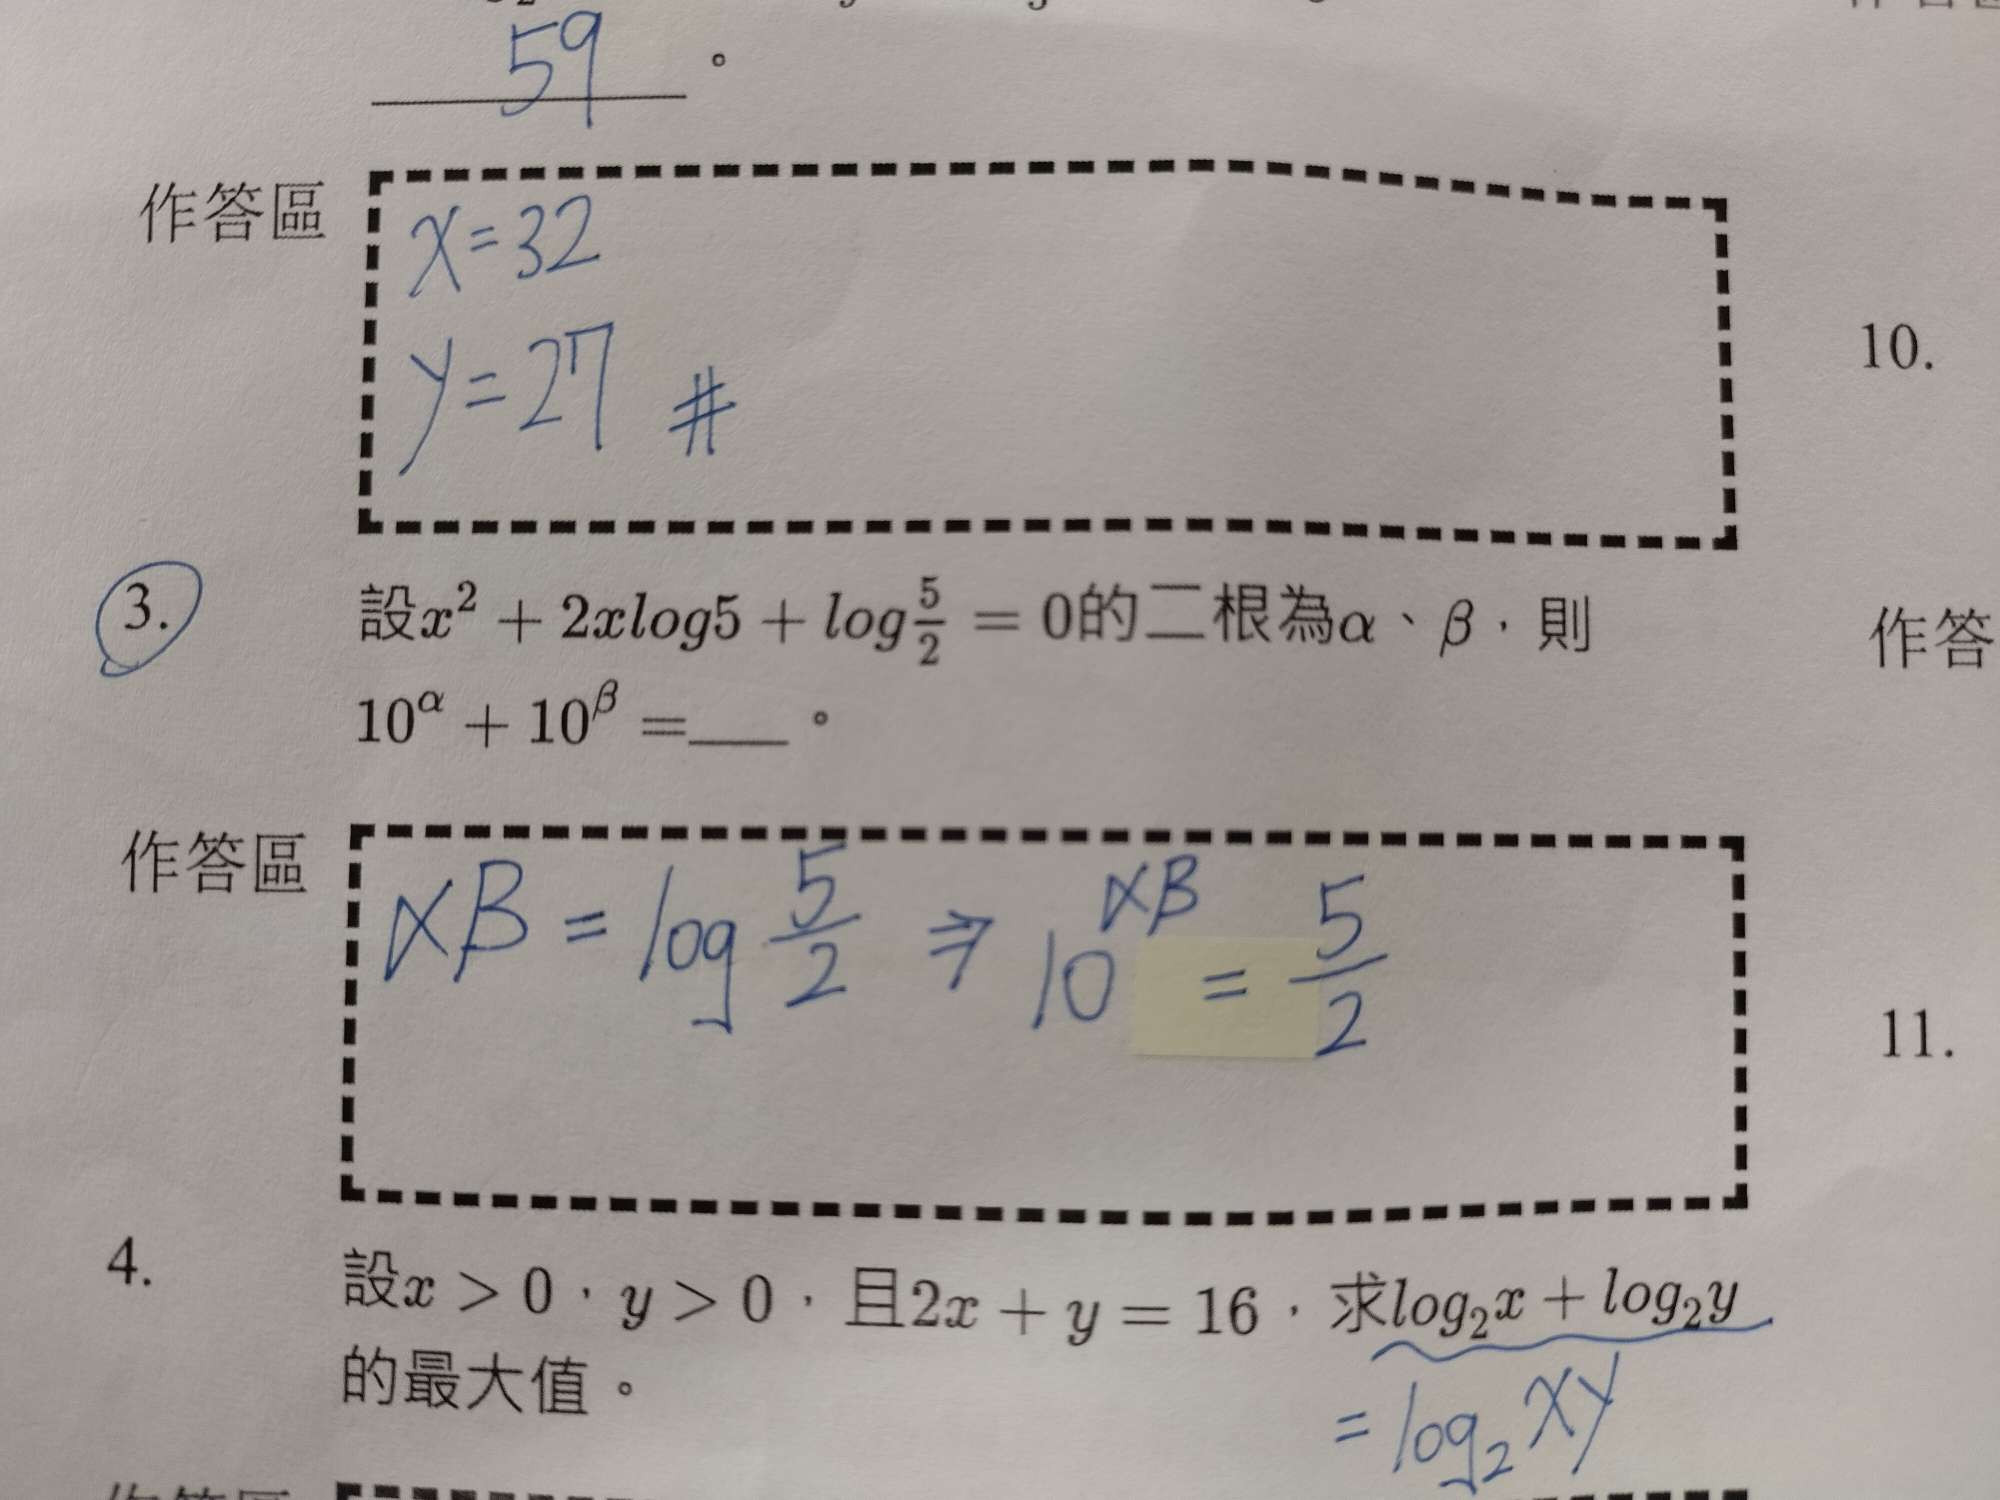 59 。
作答區
x=32
y=27 #
3. 設x² + 2xlog5 + log 5/2 = 0的二根為α、β，則
10^α + 10^β =___。
作答區
αβ = log 5/2 ⇒ 10^αβ = 5/2
4. 設x > 0，y > 0，且2x + y = 16，求log₂x + log₂y
的最大值。
= log₂xy
10.
作答
11.